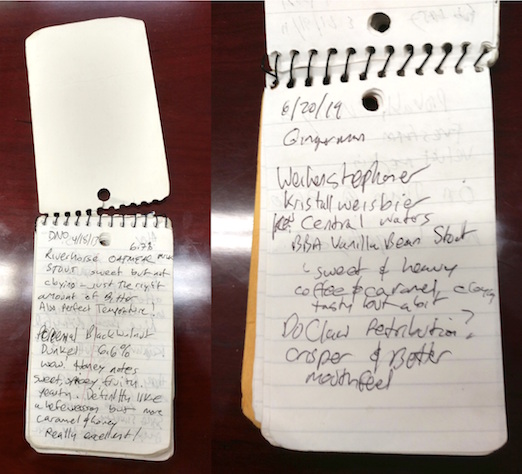 DNO 4/15/
6.7%
Riverhorse OATMEAL
STOUT sweet but not
cloying - just the right
amount of Bitter
Also Perfect Temperature!
Black Walnut
Dunkel 6.6%
wow. Honey notes
sweet, spicey fruity.
yeasty. Definitely like
a hefeweizen but more
caramel & honey
Really excellent!
6/20/19
Gingerman
Weihenstephaner
Kristallweisbier
Central Waters
BBA Vanilla Bean Stout
sweet & heavy
coffee & caramel
tasty but a bit
DuClaw Retribution?
crisper & Better
mouthfeel